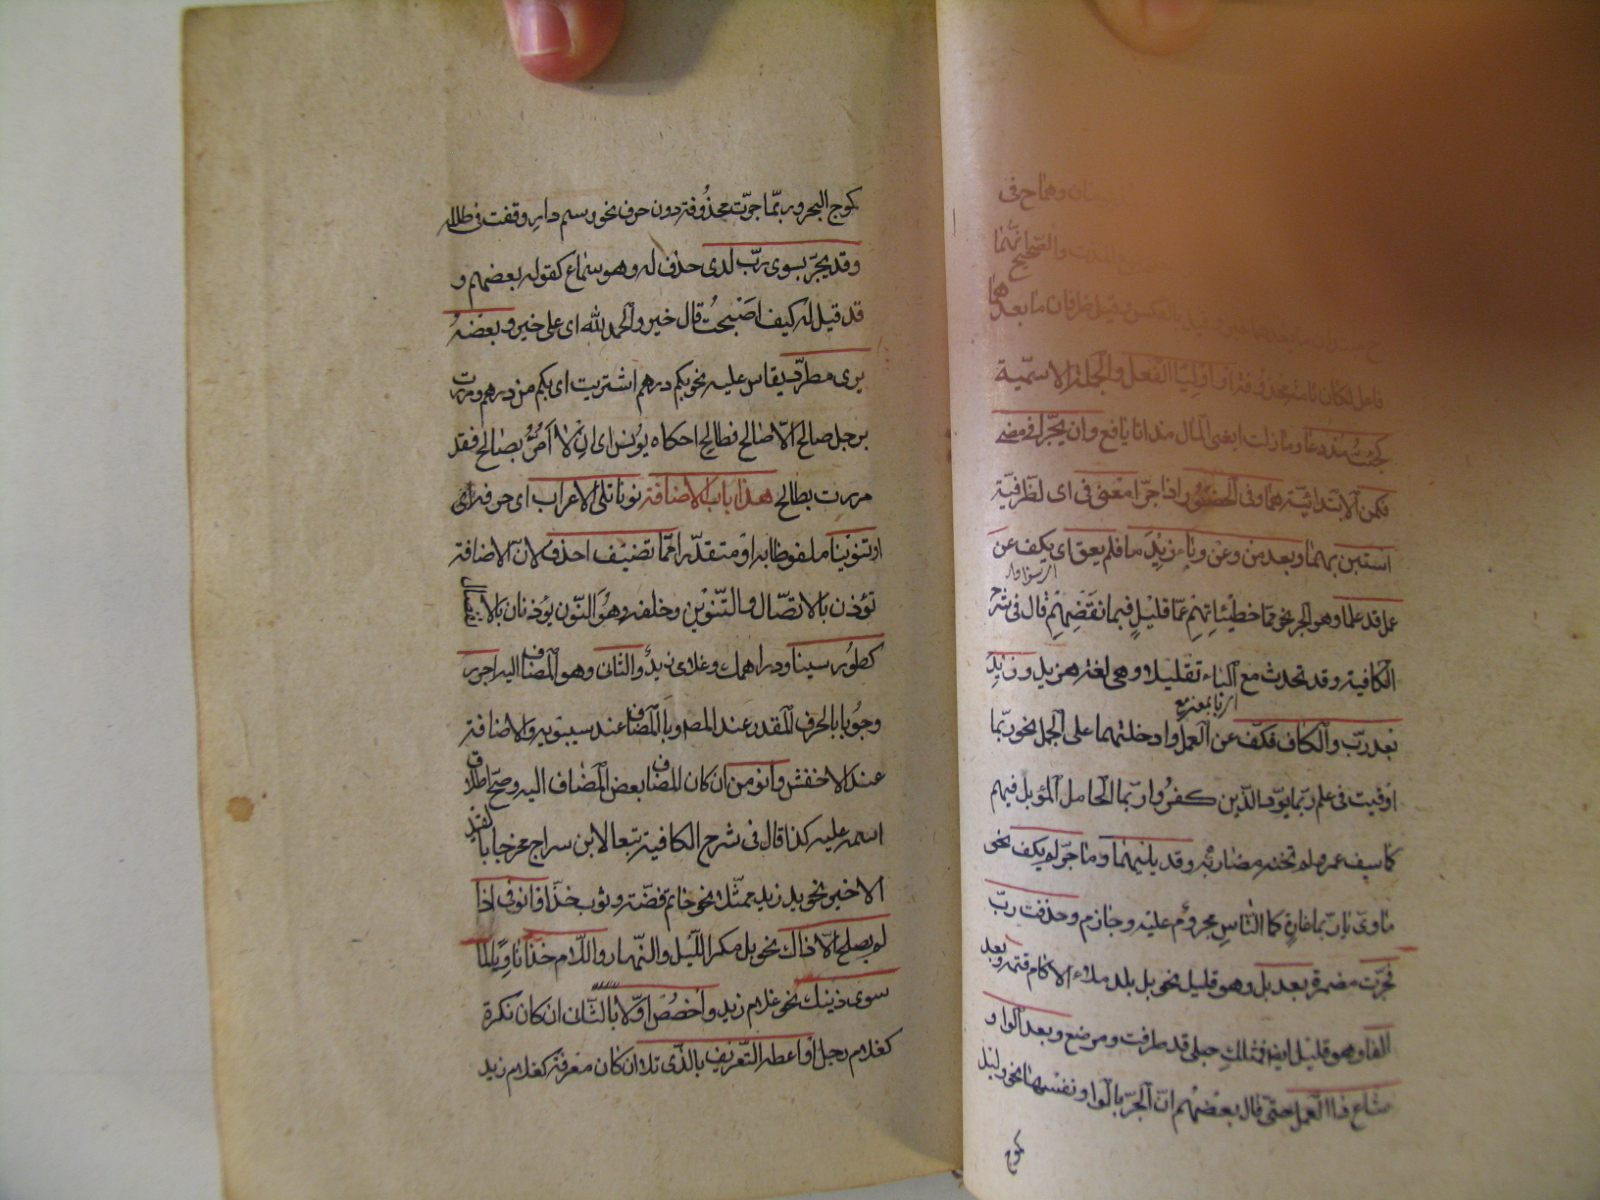 وهما حرفى
والصحيح انهما
فان ما بعدهما
فاعل لكان تامة محذوفة او اوليا الفعل والجملة الاسمية
كجئت مذ دعا وما زلت ابغى المال مذ انا يافع وان يجرا فى مضى
فكمن الابتدائية هما وفى الحضور اذا جرا معنى فى اى الظرفية
استبن بهما وبعد من وعن وباء زيد ما فلم يعق اى يكف عن
عمل قد علما وهو الجر نحو مما خطيئاتهم عما قليل فبما نقضهم قال فى شرح
الكافية وقد تحدث مع الباء تقليلا وهى لغة هزيل وزيد
بعد رب والكاف فكف عن العمل وادخلتهما على الجمل نحو ربما
اوفيت فى علم ربما يود الذين كفروا ربما الجامل المؤبل فيهم
كما سيف عمرو لم تخنه مضاربه وقد يليهما وما جر لم يكف نحو
ماوى يا ربما غارة كما الناس مجروم عليه وجازم وحذفت رب
فجرت مضمرة بعد بل وهو قليل نحو بل بلد ملاء الاكام قتمه وبعد
الفا وهو قليل ايضا فمثلك حبلى قد طرقت ومرضع وبعد الواو
شاع ذا العمل حتى قال بعضهم ان الجر بالواو نفسها نحو وليل
كموج
كموج البحر وربما جرت محذوفة دون حرف نحو رسم دار وقفت فى طلله
وقد يجر بسوى رب لدى حذف له وهو سماع كقوله بعضهم و
قد قيل له كيف اصبحت قال خير والحمد لله اى على خير وبعضه
يرى مطردا يقاس عليه نحو بكم درهم اشتريت اى بكم من درهم ومررت
برجل صالح الا صالح فطالح احكاه يونس اى ان لا امر بصالح فقد
مررت بطالح هذا باب الاضافة نونا تلى الاعراب اى حرفه اى
او تنوينا ملفوظا به او متقدرا مما تضيف احذف لان الاضافة
تؤذن بالاتصال والتنوين وخلفه وهو النون يؤذنان بالانفصال
كطور سينا ودراهمك وغلامى زيد والثانى وهو المضاف اليه اجرر
وجوبا بالحرف المقدر عند المص وبالمضاف عند سيبويه والاضافة
عند الاخفش وانو من ان كان المضاف بعض المضاف اليه وصح اطلاق
اسمه عليه كذا قال فى شرح الكافية تبعا لابن سراج مخرجا بالقيد
الاخير نحو يد زيد ممثلا بنحو خاتم فضة وثوب خز او انو فى اذا
لم يصلح الا ذاك نحو بل مكر الليل والنهار واللام خذا ناويا لما
سوى ذينك نحو غلام زيد واخصص اولا بالثانى ان كان نكرة
كغلام رجل او اعطه التعريف بالذى تلا ان كان معرفة كغلام زيد